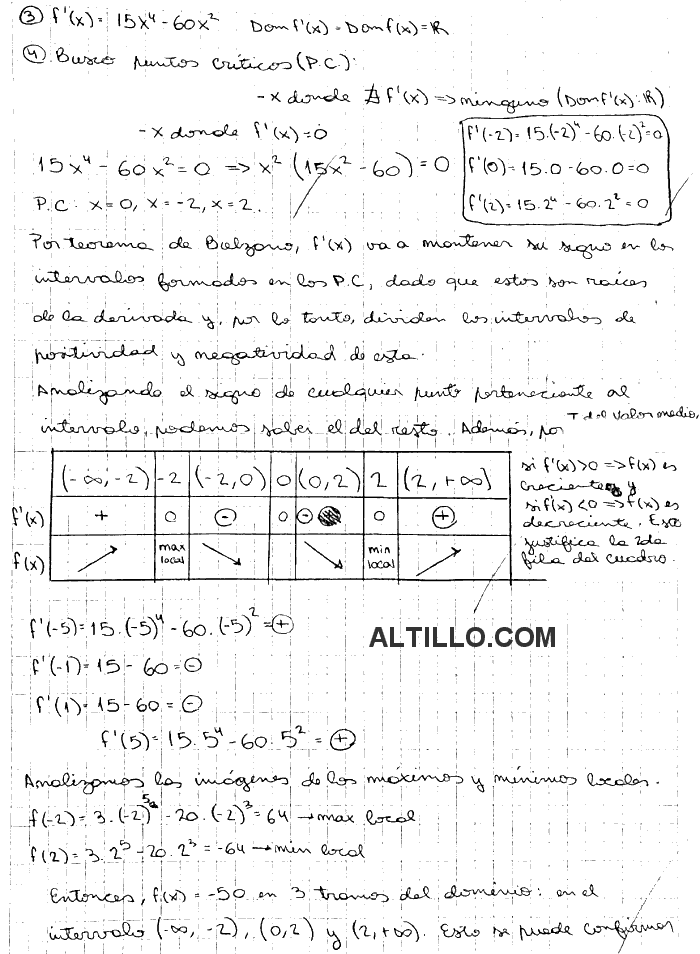 ③ f'(x) = 15x⁴ - 60x² Dom f'(x) = Dom f(x) = ℝ
④ Busco puntos críticos (P.C.):
- x donde ∄ f'(x) => ninguno (Dom f'(x): ℝ)
- x donde f'(x) = 0
15x⁴ - 60x² = 0 => x² (15x² - 60) = 0
P.C: x = 0, x = -2, x = 2.
f'(-2) = 15.(-2)⁴ - 60.(-2)² = 0
f'(0) = 15.0 - 60.0 = 0
f'(2) = 15.2⁴ - 60.2² = 0
Por teorema de Bolzano, f'(x) va a mantener su signo en los
intervalos formados en los P.C, dado que estos son raíces
de la derivada y, por lo tanto, dividen los intervalos de
positividad y negatividad de esta.
Analizando el signo de cualquier punto perteneciente al
intervalo, podemos saber el del resto. Además, por T del Valor medio,
si f'(x)>0 => f(x) es
creciente y
si f'(x) <0 => f(x) es
decreciente. Esto
justifica la 2da
fila del cuadro.
(-∞, -2) -2 (-2, 0) 0 (0, 2) 2 (2, +∞)
f'(x) + 0 ⊖ 0 ⊖ 0 ⊕
f(x) ↗ max local ↘ ↘ min local ↗
f'(-5) = 15.(-5)⁴ - 60.(-5)² = ⊕
ALTILLO.COM
f'(-1) = 15 - 60 = ⊖
f'(1) = 15 - 60 = ⊖
f'(5) = 15.5⁴ - 60.5² = ⊕
Analizamos las imágenes de los máximos y mínimos locales.
f(-2) = 3.(-2)⁵ - 20.(-2)³ = 64 → max local
f(2) = 3.2⁵ - 20.2³ = -64 → min local
Entonces, f(x) = -50 en 3 tramos del dominio: en el
intervalo (-∞, -2), (0, 2) y (2, +∞). Esto se puede confirmar